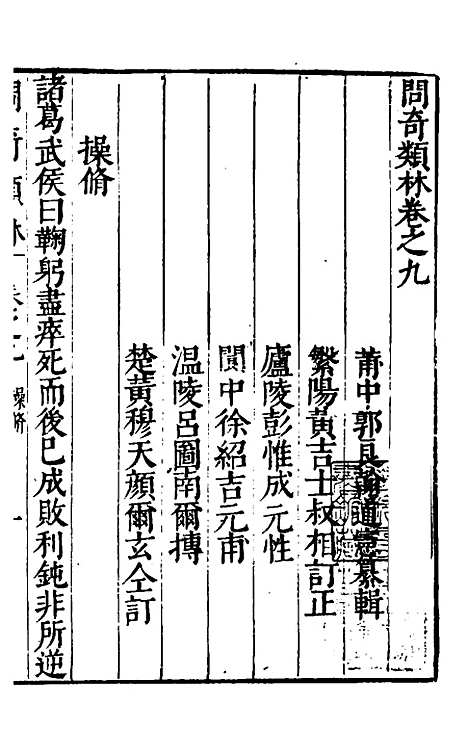 問奇類林卷之九
莆中郭良翰道憲纂輯
繁陽黃吉士叔相訂正
廬陵彭惟成元性
閩中徐紹吉元甫
温陵呂圖南爾摶
楚黃穆天顔爾玄仝訂
操脩
諸葛武侯曰鞠躬盡瘁死而後已成敗利鈍非所逆
問奇類林 卷之九 操脩 一